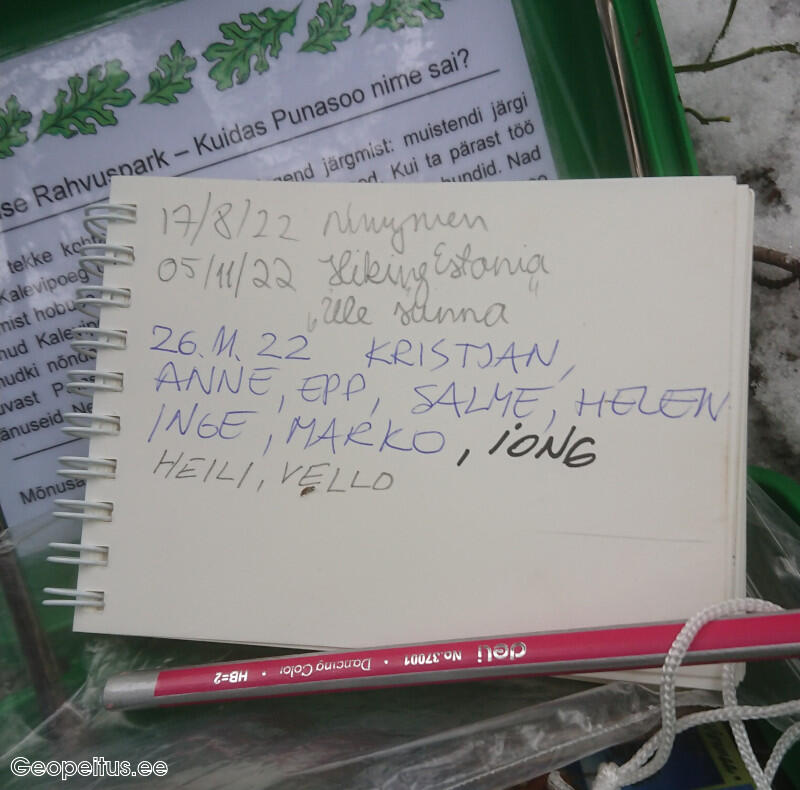 se Rahvuspark – Kuidas Punasoo nime sai?
gend järgmist: muistendi järgi
ood. Kui ta pärast töö
hundid. Nad
tekke koht
Kalevipoeg
mist hobu
nud Kalevip
nudki nõnd
uvast P
änuseid. Ne
Mõnusa
17/8/22
05/11/22 Hiking Estonia
„Üle sunna“
26.11.22 KRISTJAN,
ANNE, EPP, SALME, HELEN
INGE, MARKO, iONG
HEILI, VELLO
deli No.37001 • Dancing Color • HB=2
Geopeitus.ee